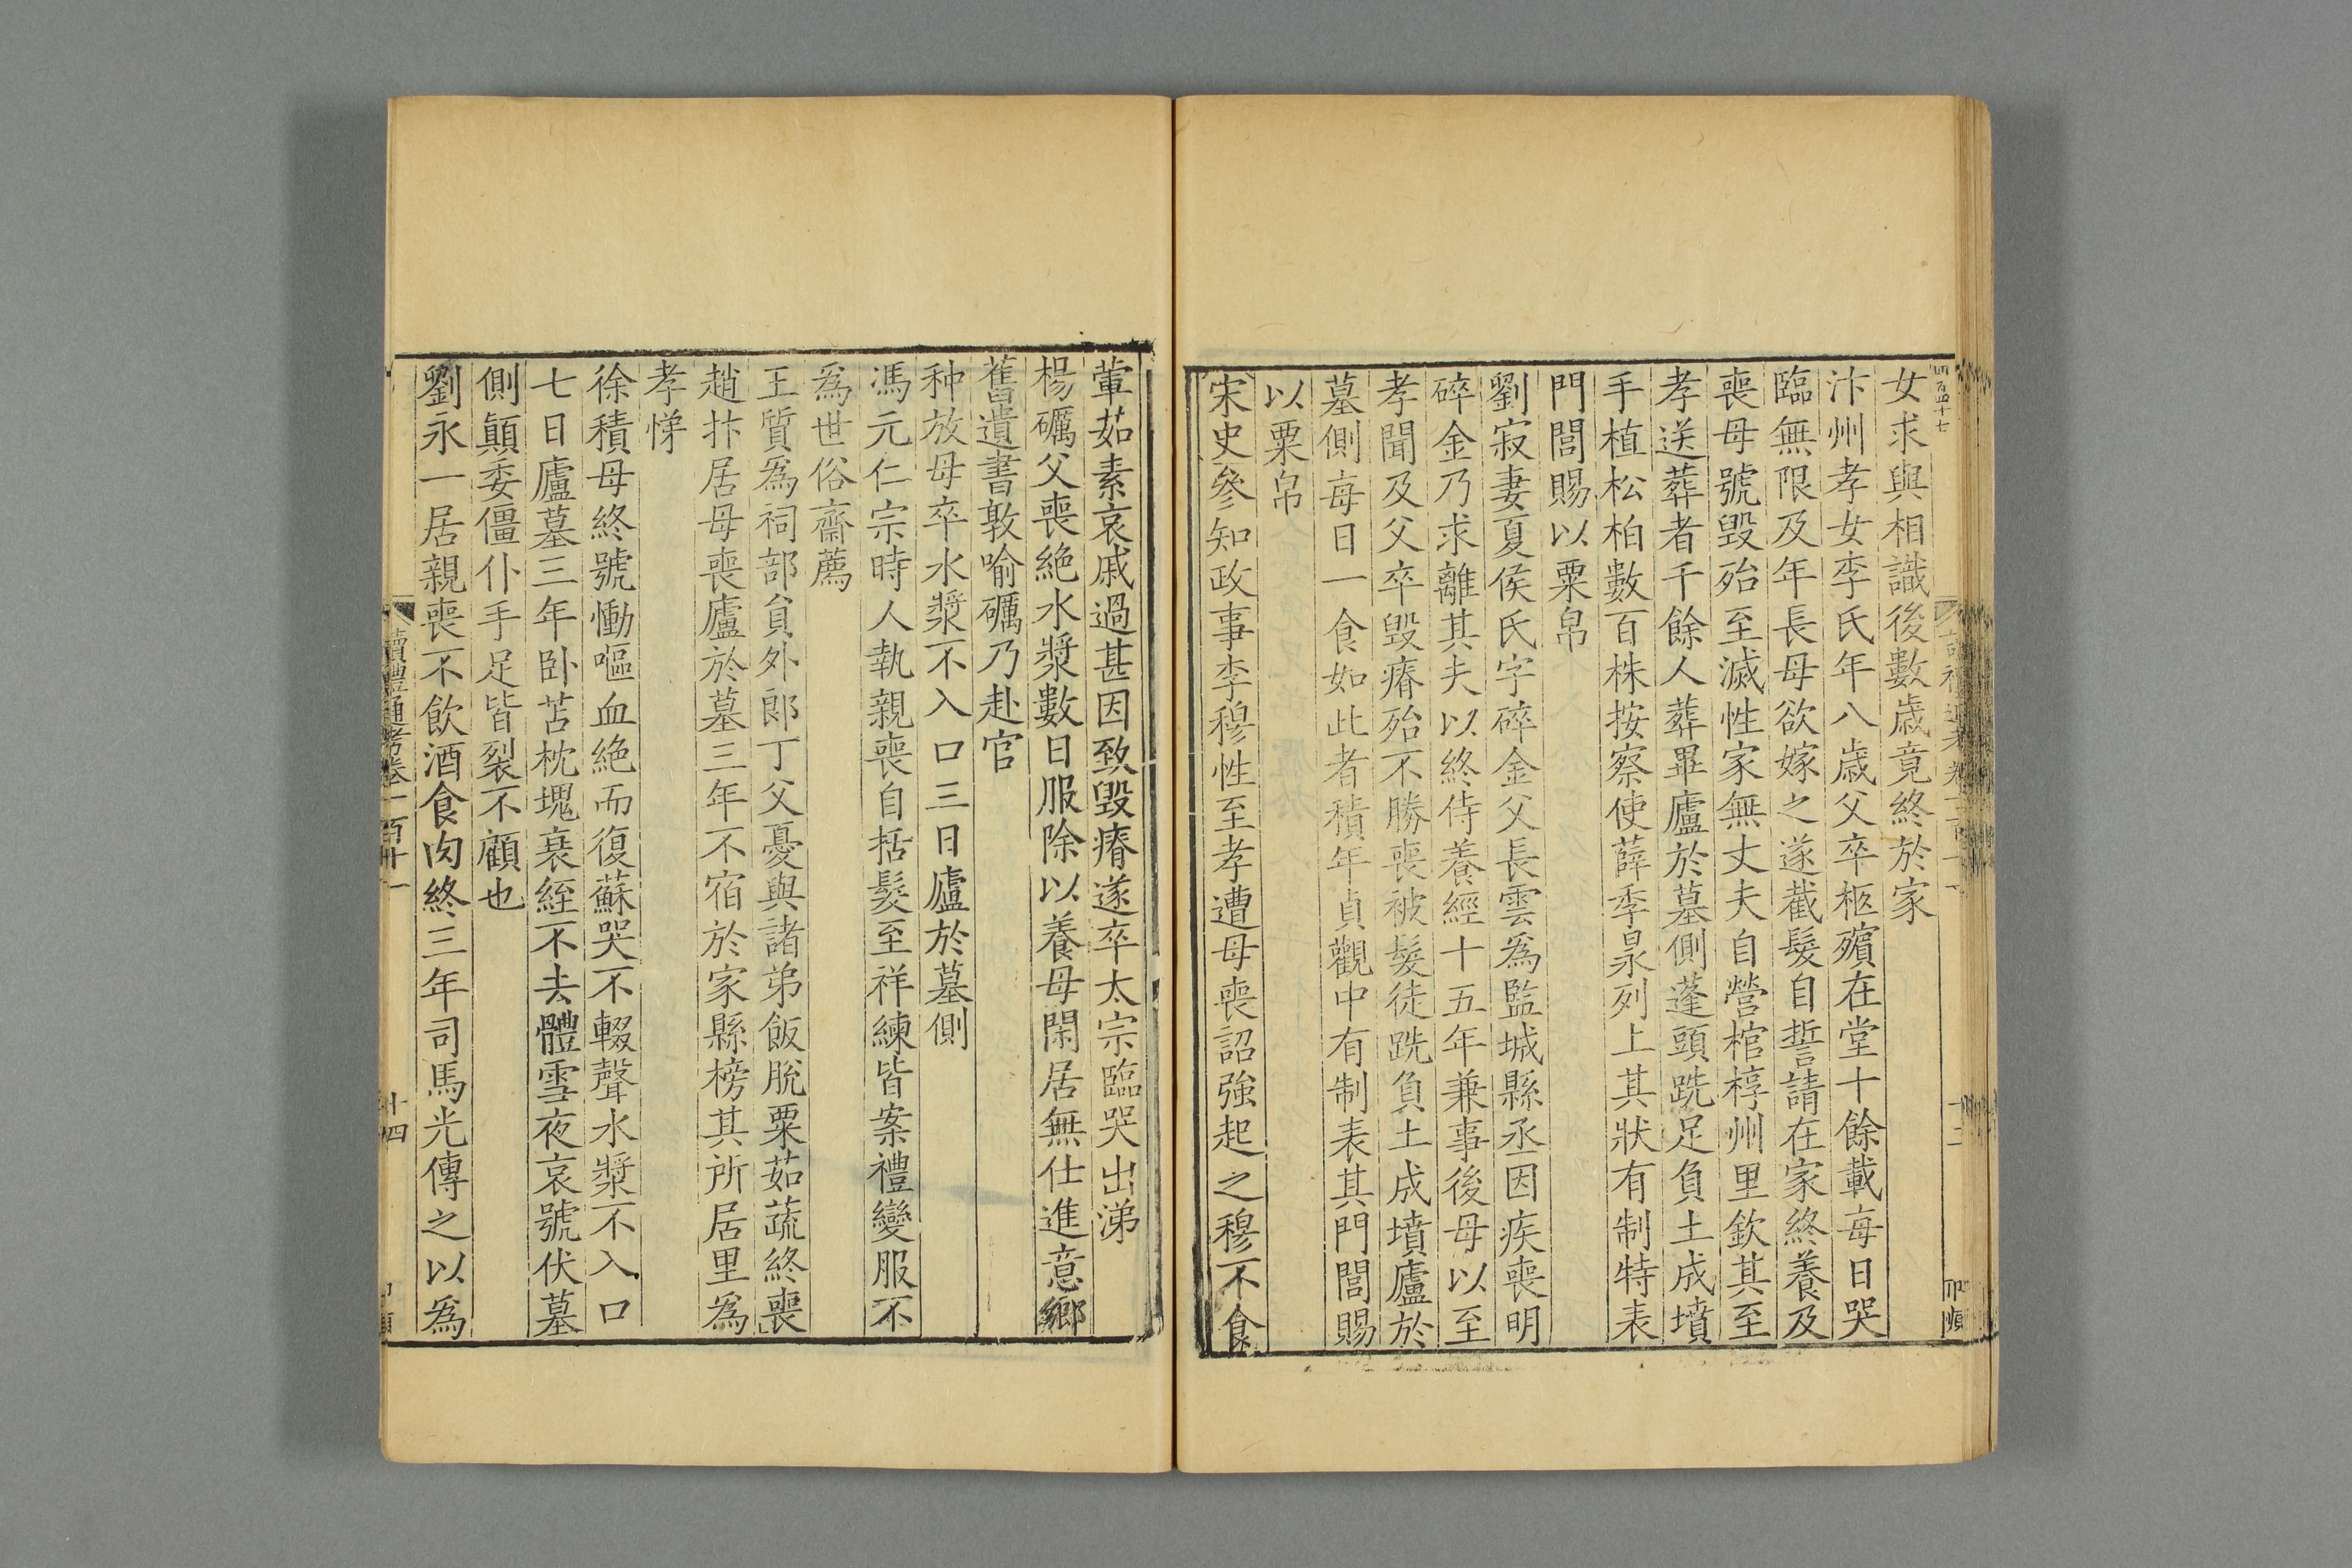 女求與相識後數歲竟終於家
汴州孝女李氏年八歲父卒柩殯在堂十餘載每日哭
臨無限及年長母欲嫁之遂截髮自誓請在家終養及
喪母號毀殆至滅性家無丈夫自營棺椁州里欽其至
孝送葬者千餘人葬畢廬於墓側蓬頭跣足負土成墳
手植松柏數百株按察使薛季泉列上其狀有制特表
門閭賜以粟帛
劉寂妻夏侯氏字碎金父長雲為監城縣丞因疾喪明
碎金乃求離其夫以終侍養經十五年兼事後母以至
孝聞及父卒毀瘠殆不勝喪被髮徒跣負土成墳廬於
墓側每日一食如此者積年貞觀中有制表其門閭賜
以粟帛
宋史參知政事李穆性至孝遭母喪詔強起之穆不食
葷茹素哀戚過甚因致毀瘠遂卒太宗臨哭出涕
楊礪父喪絶水漿數日服除以養母閑居無仕進意鄉
舊遺書敦喻礪乃赴官
种放母卒水漿不入口三日廬於墓側
馮元仁宗時人執親喪自括髮至祥練皆案禮變服不
為世俗齋薦
王質為祠部員外郎丁父憂與諸弟飯脫粟茹蔬終喪
趙抃居母喪廬於墓三年不宿於家縣榜其所居里為
孝悌
徐積母終號慟嘔血絶而復蘇哭不輟聲水漿不入口
七日廬墓三年卧苫枕塊衰絰不去體雪夜哀號伏墓
側顛委僵仆手足皆裂不顧也
劉永一居親喪不飲酒食肉終三年司馬光傳之以為
讀禮通考卷一百十一
十四